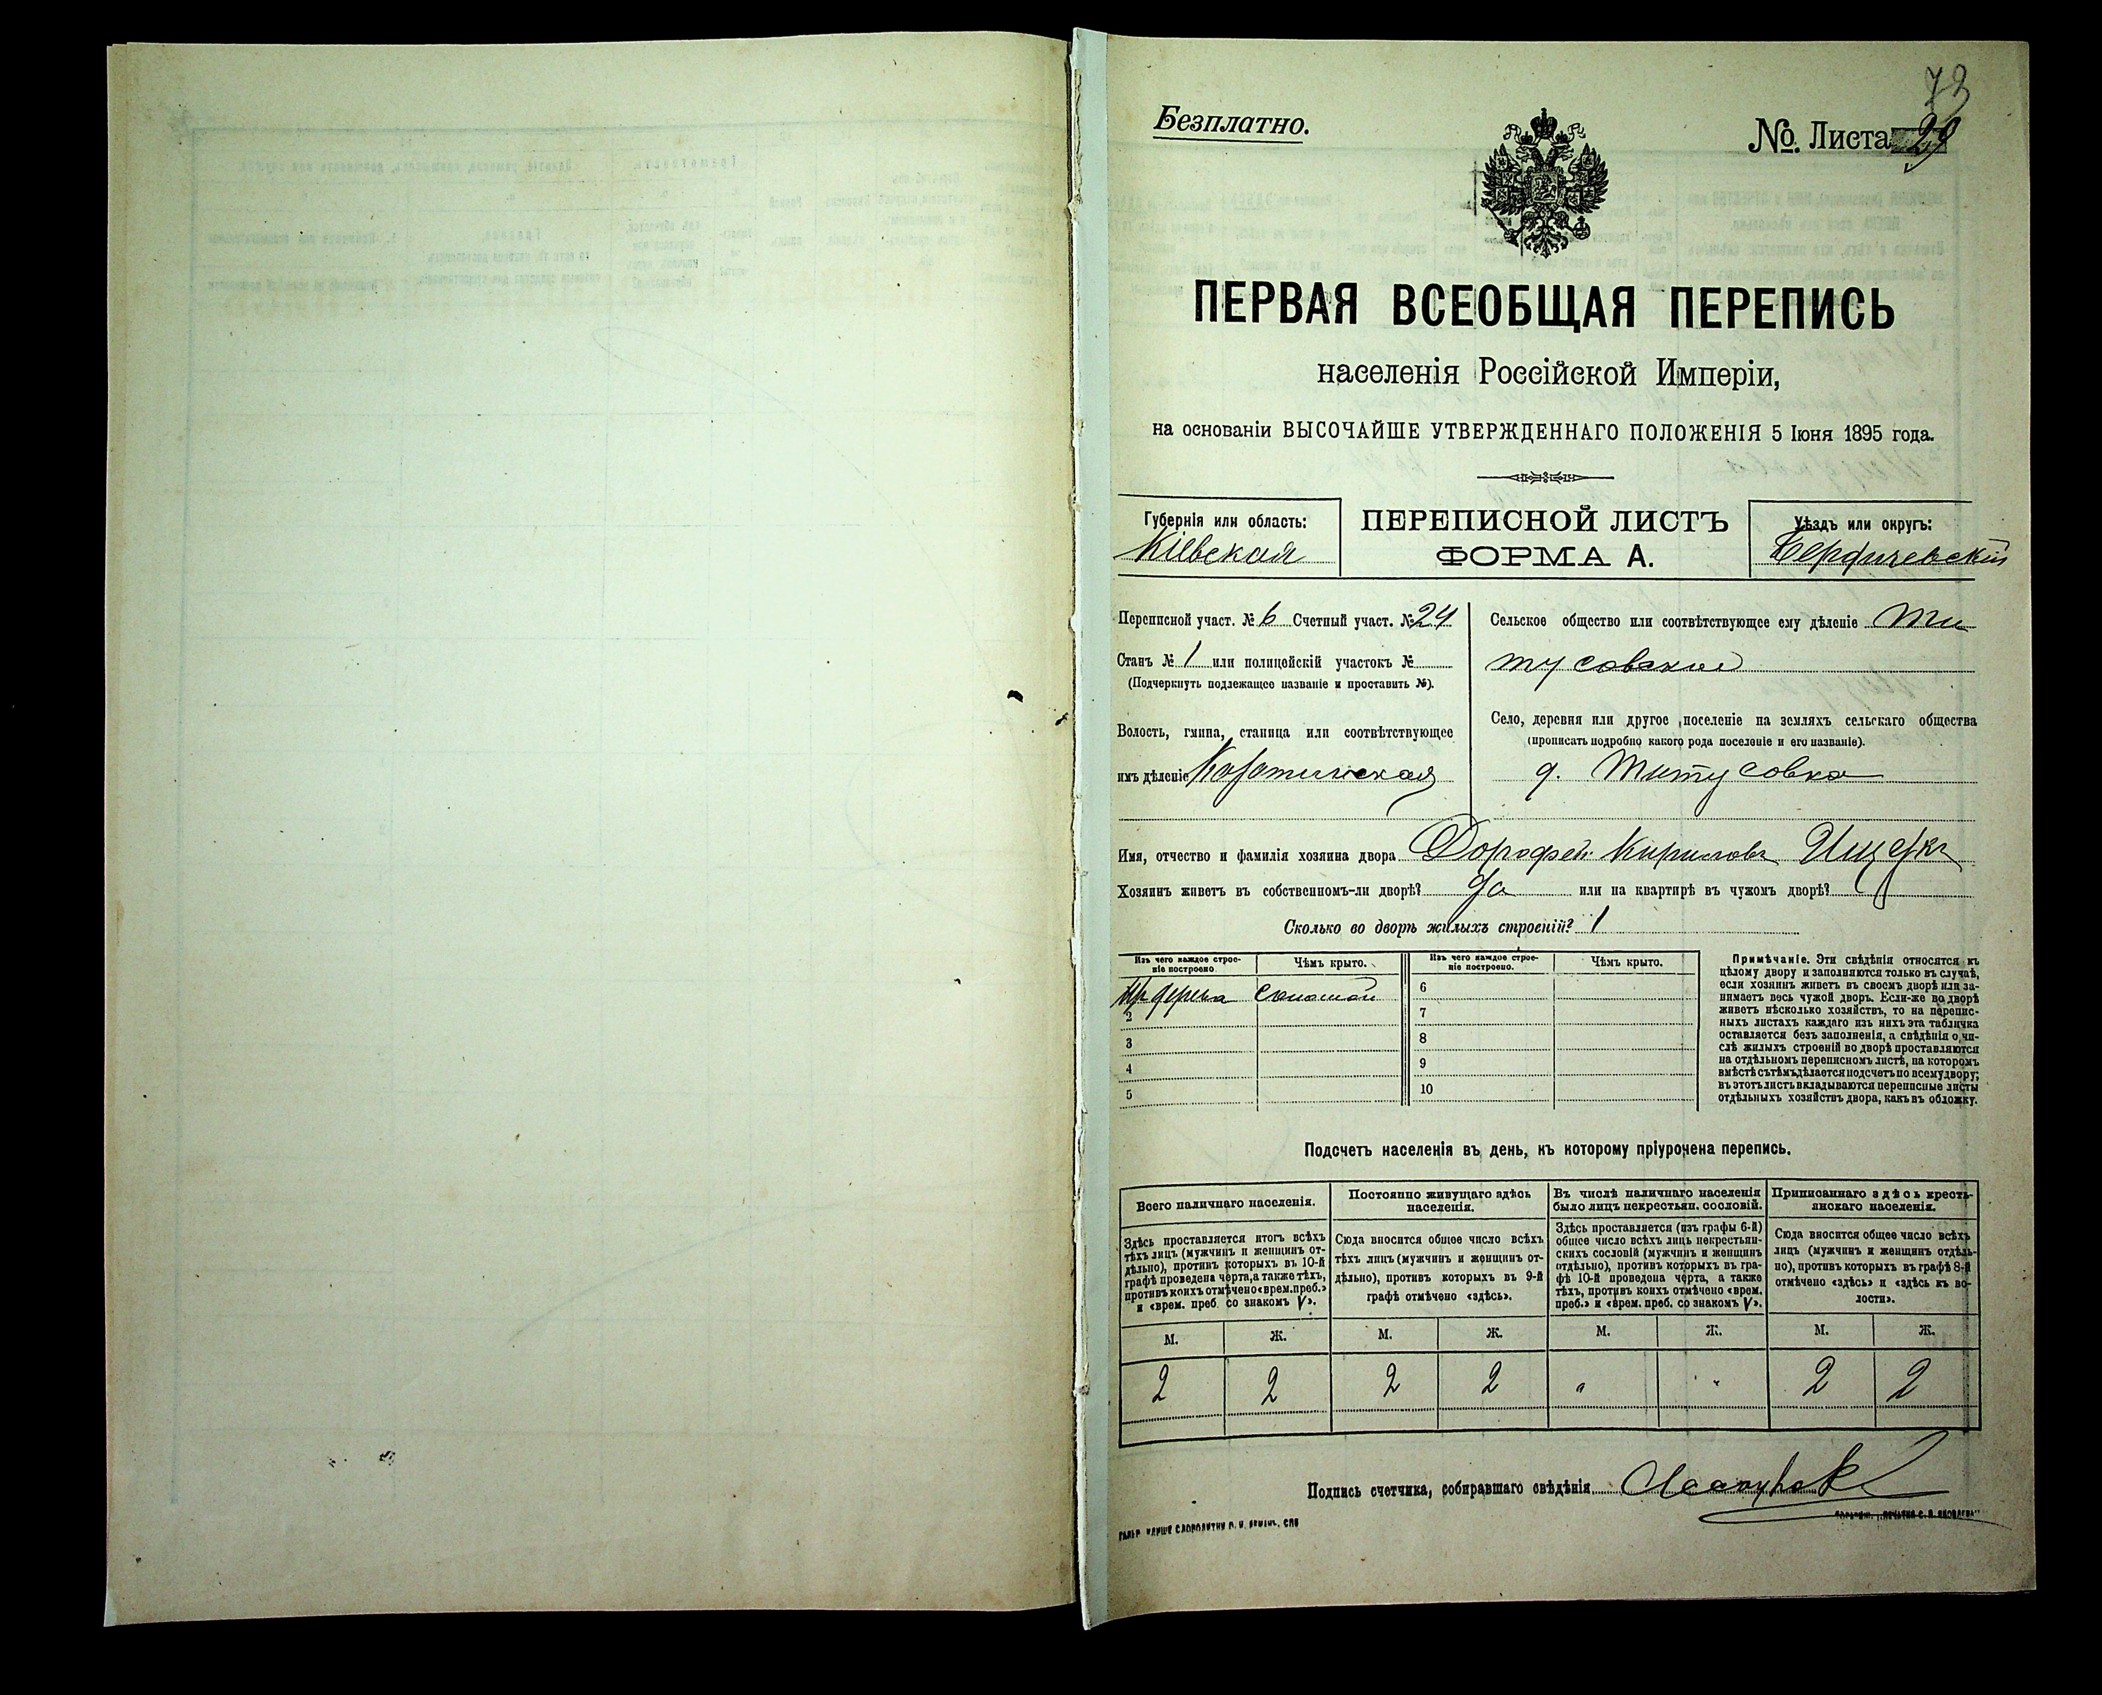 73
Безплатно.
№. Листа 29
ПЕРВАЯ ВСЕОБЩАЯ ПЕРЕПИСЬ
населенія Россійской Имперіи,
на основаніи ВЫСОЧАЙШЕ УТВЕРЖДЕННАГО ПОЛОЖЕНІЯ 5 Іюня 1895 года.
Губернія или область:
Кіевская
ПЕРЕПИСНОЙ ЛИСТЪ
ФОРМА А.
Уѣздъ или округъ:
Бердичевскій
Переписной участ. № 6 Счетный участ. № 24
Станъ № 1 или полицейскій участокъ №
(Подчеркнуть подлежащее названіе и проставить №).
Волость, гмина, станица или соотвѣтствующее
имъ дѣленіе
Сельское общество или соотвѣтствующее ему дѣленіе Ти
тусовское
Село, деревня или другое поселеніе на земляхъ сельскаго общества
(прописать подробно какого рода поселеніе и его названіе).
д. Титусовка
Имя, отчество и фамилія хозяина двора Дорофей Кириловъ
Хозяинъ живетъ въ собственномъ-ли дворѣ? Да или на квартирѣ въ чужомъ дворѣ?
Сколько во дворѣ жилыхъ строеній? 1
Изъ чего каждое строе-
ніе построено.
Чѣмъ крыто.
Изъ чего каждое строе-
ніе построено.
Чѣмъ крыто.
Изъ дерева соломой
2
3
4
5
6
7
8
9
10
Примѣчаніе. Эти свѣдѣнія относятся къ
цѣлому двору и заполняются только въ случаѣ,
если хозяинъ живетъ въ своемъ дворѣ или за-
нимаетъ весь чужой дворъ. Если-же во дворѣ
живетъ нѣсколько хозяйствъ, то на перепис-
ныхъ листахъ каждаго изъ нихъ эта табличка
оставляется безъ заполненія, а свѣдѣнія о чи-
слѣ жилыхъ строеній во дворѣ проставляются
на отдѣльномъ переписномъ листѣ, на которомъ
вмѣстѣ съ тѣмъ дѣлается подсчетъ по всему двору;
въ этотъ листъ вкладываются переписные листы
отдѣльныхъ хозяйствъ двора, какъ въ обложку.
Подсчетъ населенія въ день, къ которому пріурочена перепись.
Всего наличнаго населенія.
Здѣсь проставляется итогъ всѣхъ
тѣхъ лицъ (мужчинъ и женщинъ от-
дѣльно), противъ которыхъ въ 10-й
графѣ проведена черта, а также тѣхъ,
противъ коихъ отмѣчено «врем. преб.»
и «врем. преб. со знакомъ V».
Постоянно живущаго здѣсь
населенія.
Сюда вносится общее число всѣхъ
тѣхъ лицъ (мужчинъ и женщинъ от-
дѣльно), противъ которыхъ въ 9-й
графѣ отмѣчено «здѣсь».
Въ числѣ наличнаго населенія
было лицъ некрестьян. сословій.
Здѣсь проставляется (изъ графы 6-й)
общее число всѣхъ лицъ некрестьян-
скихъ сословій (мужчинъ и женщинъ
отдѣльно), противъ которыхъ въ гра-
фѣ 10-й проведена черта, а также
тѣхъ, противъ коихъ отмѣчено «врем.
преб.» и «врем. преб. со знакомъ V».
Приписаннаго здѣсь кресть-
янскаго населенія.
Сюда вносится общее число всѣхъ
лицъ (мужчинъ и женщинъ отдѣль-
но), противъ которыхъ въ графѣ 8-й
отмѣчено «здѣсь» и «здѣсь къ во-
лости».
М. Ж. М. Ж. М. Ж. М. Ж.
2 2 2 2 " " 2 2
Подпись счетчика, собиравшаго свѣдѣнія